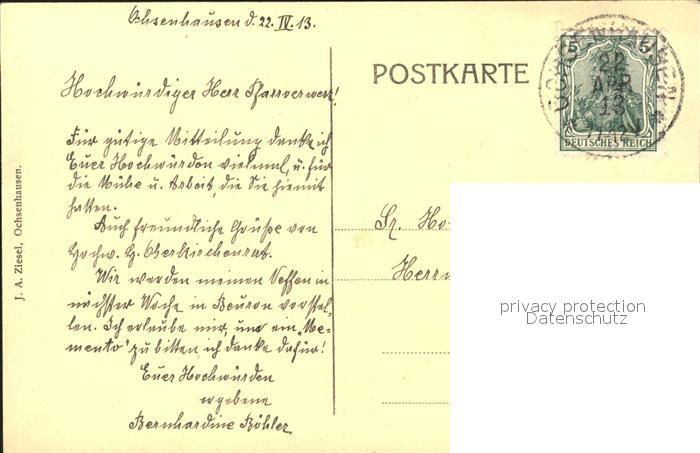 Ochsenhausen d. 22. IV. 13.
Hochwürdiger Herr Pfarrverwes!
Für gütige Mitteilung danke ich
Euer Hochwürden vielmal, u. für
die Mühe u. Arbeit, die Sie hiemit
hatten.
Auch freundliche Grüße von
Hochw. H. Oberkirchenrat.
Wir werden meinen Neffen in
nächster Woche in Beuron vorstel-
len. Ich erlaube mir, um ein "Me-
mento" zu bitten, ich danke dafür!
Euer Hochwürden
ergebene
Bernhardine Böhler
J. A. Ziesel, Ochsenhausen.
POSTKARTE
5 5
DEUTSCHES REICH
OCHSENHAUSEN
22
APR
13
Sr. Ho
Herrn
privacy protection
Datenschutz